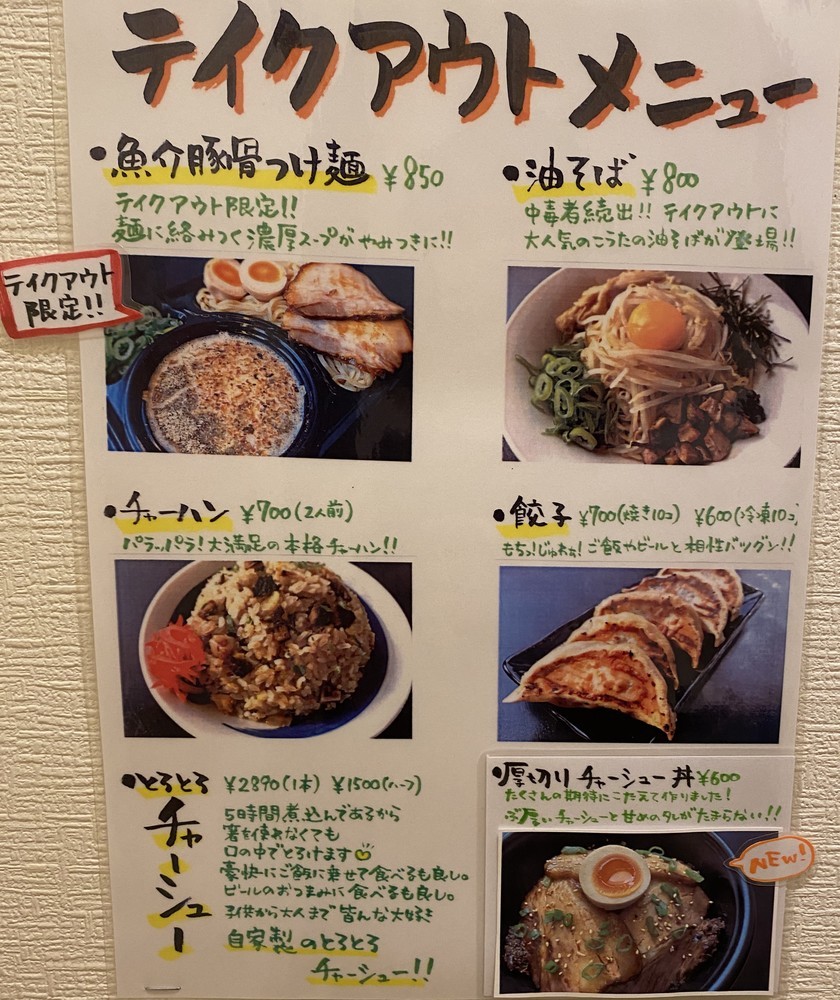 テイクアウトメニュー
・魚介豚骨つけ麺 ¥850
テイクアウト限定!!
麺に絡みつく濃厚スープがやみつきに!!
テイクアウト
限定!!
・油そば ¥800
中毒者続出!! テイクアウトに
大人気のこうたの油そばが登場!!
・チャーハン ¥700(2人前)
パラッパラ!大満足の本格チャーハン!!
・餃子 ¥700(焼き10コ) ¥600(冷凍10コ)
もちっ!じゅわぁ!ご飯やビールと相性バツグン!!
・とろとろ
チャーシュー
¥2890(1本) ¥1500(ハーフ)
5時間煮込んであるから
箸を使わなくても
口の中でとろけます
豪快にご飯に乗せて食べるも良し。
ビールのおつまみに食べるも良し。
子供から大人まで皆んな大好き
自家製のとろとろ
チャーシュー!!
・厚切りチャーシュー丼¥600
たくさんの期待にこたえて作りました!
ぶ厚いチャーシューと甘めのタレがたまらない!!
NEW!